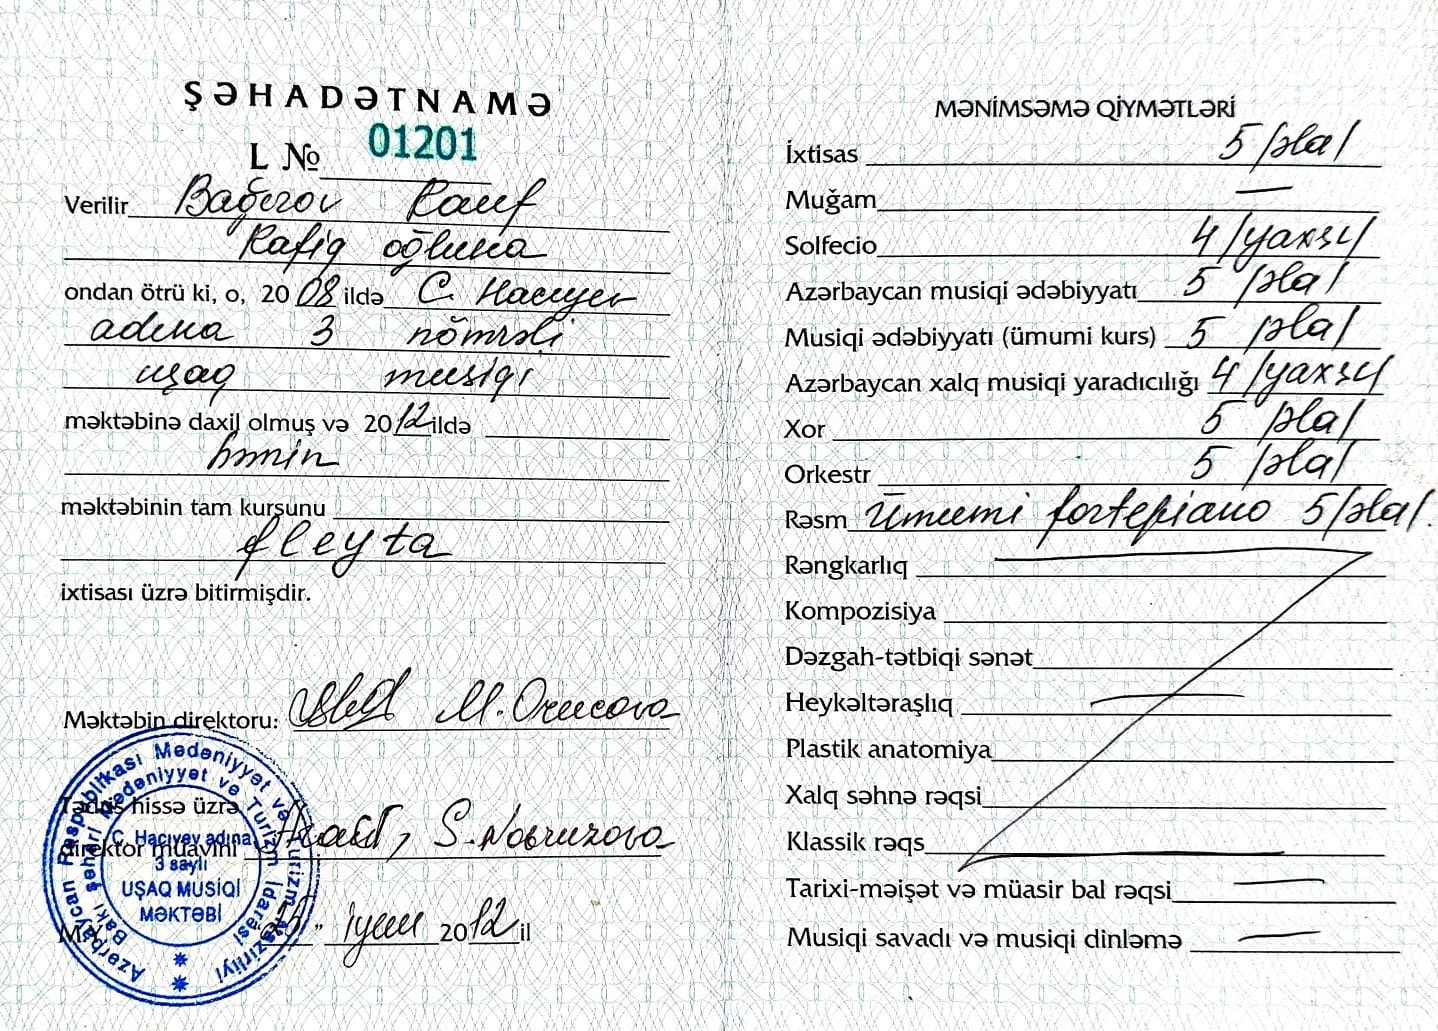 ŞƏHADƏTNAMƏ
L № 01201
Verilir Bağırov Rauf
Rafiq oğluna
ondan ötrü ki, o, 2008 ildə C. Hacıyev
adına 3 nömrəli
uşaq musiqi
məktəbinə daxil olmuş və 2012 ildə
həmin
məktəbinin tam kursunu
fleyta
ixtisası üzrə bitirmişdir.
Məktəbin direktoru: M. Orucova
Tədris hissə üzrə
direktor müavini S. Novruzova
M. " 25 " iyun 2012 il
Azərbaycan Respublikası Mədəniyyət və Turizm Nazirliyi
Bakı şəhəri Mədəniyyət və Turizm İdarəsi
C. Hacıyev adına
3 saylı
UŞAQ MUSİQİ
MƏKTƏBİ
MƏNİMSƏMƏ QİYMƏTLƏRİ
İxtisas 5 /əla/
Muğam —
Solfecio 4 /yaxşı/
Azərbaycan musiqi ədəbiyyatı 5 /əla/
Musiqi ədəbiyyatı (ümumi kurs) 5 /əla/
Azərbaycan xalq musiqi yaradıcılığı 4 /yaxşı/
Xor 5 /əla/
Orkestr 5 /əla/
Rəsm Ümumi fortepiano 5 /əla/.
Rəngkarlıq
Kompozisiya
Dəzgah-tətbiqi sənət
Heykəltəraşlıq —
Plastik anatomiya
Xalq səhnə rəqsi
Klassik rəqs
Tarixi-məişət və müasir bal rəqsi —
Musiqi savadı və musiqi dinləmə —